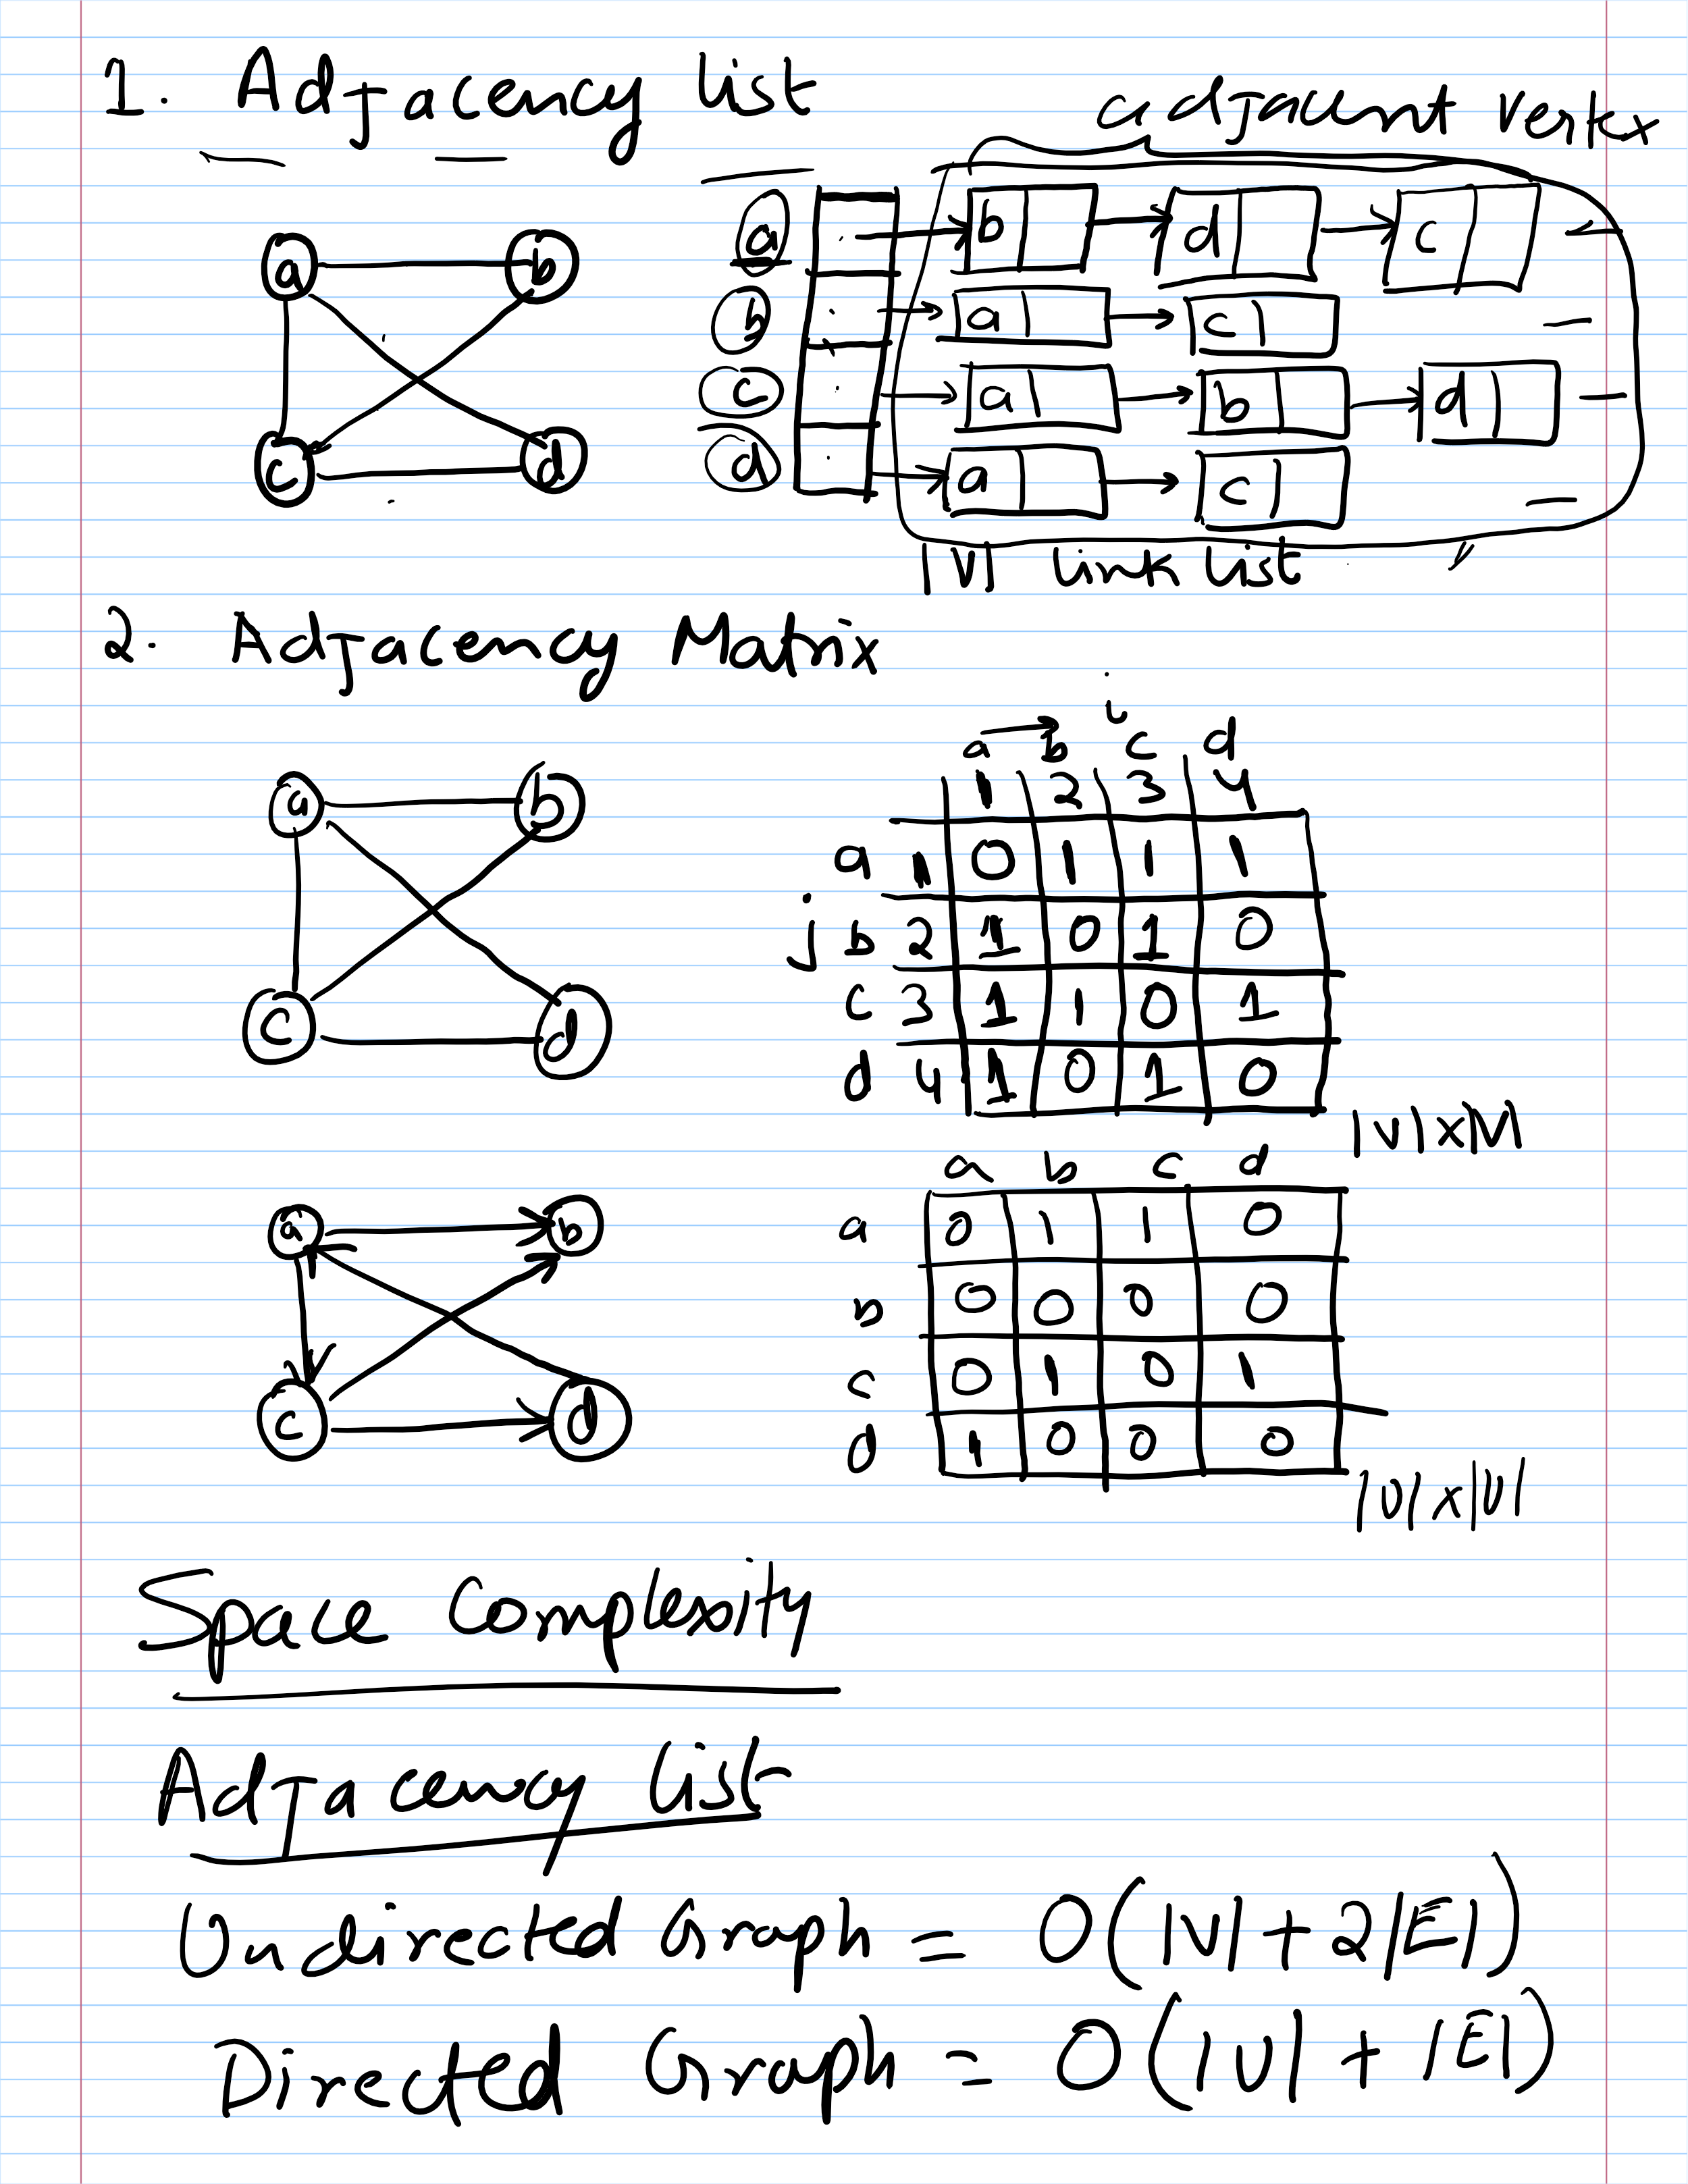 1. Adjacency list
adjacent vertex
a b d c
a b
b a c
c a b d
c d
d a c
|V| link list
2. Adjacency Matrix
i
a b c d
1 2 3 4
a b
a 1 0 1 1 1
j b 2 1 0 1 0
c 3 1 1 0 1
c d
d 4 1 0 1 0
|V|x|V|
a b c d
a b
a 0 1 1 0
b 0 0 0 0
c 0 1 0 1
c d
d 1 0 0 0
|V|x|V|
Space Complexity
Adjacency list
Undirected Graph = O(|V| + 2|E|)
Directed Graph = O(|V| + |E|)